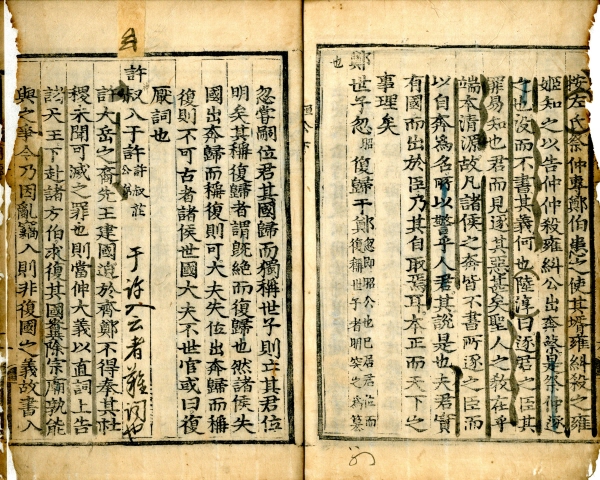 按左氏祭仲專鄭伯患之使其壻雍糾殺之雍
姬知之以告仲仲殺雍糾公出奔蔡是祭仲逐
之也沒而不書其義何也陸淳曰逐君之臣其
罪易知也君而見逐其惡甚矣聖人之教在乎
端本清源故凡諸侯之奔皆不書所逐之臣而
以自奔爲名所以警乎人君其說是也夫君實
有國而出於臣乃其自取焉耳本正而天下之
事理矣
鄭世子忽復歸于鄭
也
忽嘗嗣位君其國歸而獨稱世子則亡其君位
明矣其稱復歸者謂旣絶而復歸也然諸侯失
國出奔歸而稱復則可大夫失位出奔歸而稱
復則不可古者諸侯世國大夫不世官或曰復
厭詞也
許叔入于許 許叔莊公弟
于許入云者難詞也
許大岳之裔先王建國迫於齊鄭不得奉其社
稷未聞可滅之罪也則當仲大義以直詞上告
訟天王下赴諸方伯求復其國糞除宗廟孰能
與之爭今乃因亂竊入則非復國之義故書入